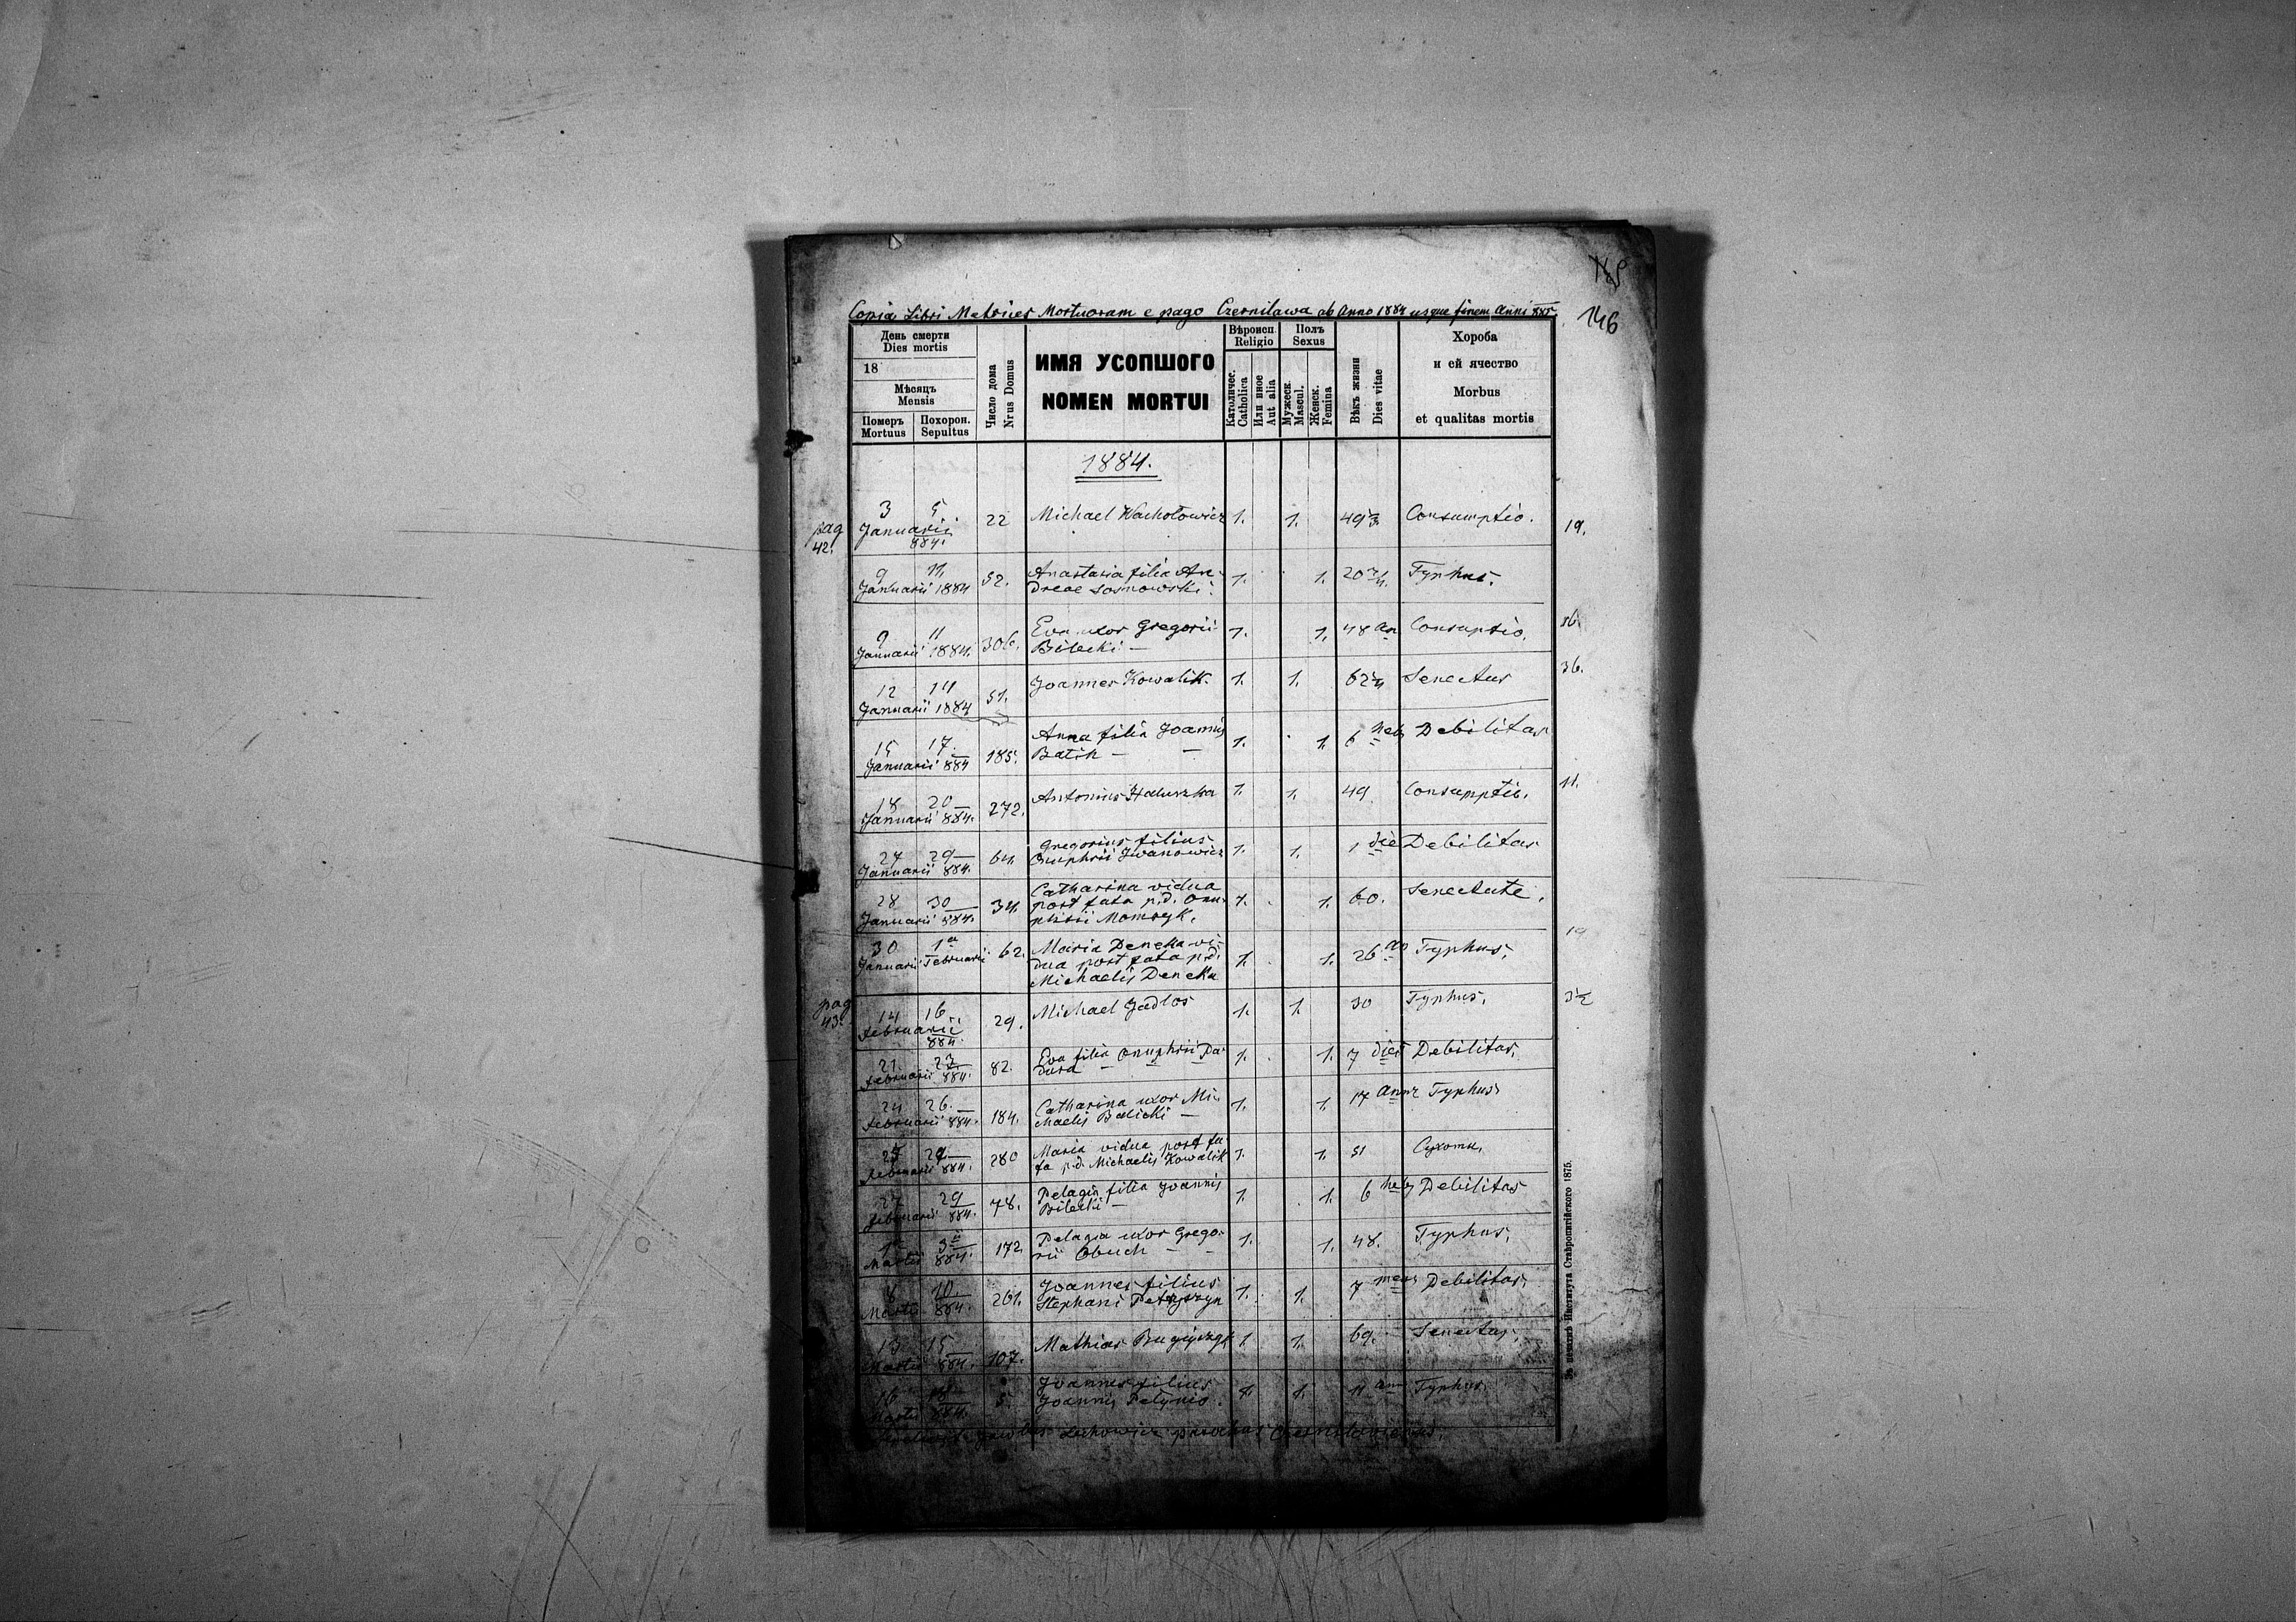 146
Copia Libri Metrices Mortuorum e pago Czernilawa ab Anno 1884 usque finem Anni 885.
День смерти
Dies mortis
18
Мѣсяць
Mensis
Померъ Похорон.
Mortuus Sepultus
Число дома
Nrus Domus
ИМЯ УСОПШОГО
NOMEN MORTUI
Вѣроисп.
Religio
Католичес.
Catholica
Или иное
Aut alia
Полъ
Sexus
Мужеск.
Mascul.
Женск.
Femina
Вѣкъ жизни
Dies vitae
Хороба
и ей ячество
Morbus
et qualitas mortis
1884.
pag 42.
3 5. Januarii 884. 22 Michael Wachołowicz 1. 1. Consumptio. 19.
9 11 Januarii 1884 52. Anastasia filia An-
dreae Sosnowski. 1. 1. Typhus.
9 11 Januarii 1884. 306. Eva uxor Gregorii
Bilecki — 1. 1. 48 an Consuptio.
12 14 Januarii 1884 51. Joannes Kowalik. 1. 1. Senectus 36.
15 17. Januarii 884 185. Anna filia Joannis
Batik — 1. 1. 6 heb Debilitas
18 20 Januarii 884. 272. Antonius Haluszka 1. 1. 49 Consumptio. 11.
27 29 Januarii 884. 64. Gregorius filius
Onuphrii Iwanowicz 1. 1. 1 die Debilitas
28 30 Januarii 884. 34. Catharina vidua
post fata p.d. Onu-
phrii Momryk. 1. 1. 60. Senectute.
30 Januarii 1a Februarii 62. Maria Deneka vi-
dua post fata p.d.
Michaelis Deneka 1. 1. 26 an Typhus.
pag 43.
14 16. Februarii 884. 29. Michael Jadlos 1. 1. 30 Typhus.
21 23 Februarii 884. 82. Eva filia Onuphrii Da-
dura — 1. 1. 7 dies Debilitas.
24 26. Februarii 884. 184. Catharina uxor Mi-
chaelis Balicki — 1. 1. 17 ann Typhus
25 Februarii 884. 280 Maria vidua post fa-
ta p.d. Michaelis Kowalik 1. 1. 51 Сухоти
27 29 Februarii 884. 78. Pelagia filia Joannis
Bilecki — 1. 1. 6 heb Debilitas
1 3 Martii 884. 172. Pelagia uxor Grego-
rii Obuch — 1. 1. 48. Typhus.
8 10. Martii 884. 261. Joannes filius
Stephani 1. 1. 7 mens Debilitas.
13 15 Martii 884. 107. Mathias 1. 1. 69. Senectus.
16 18 Martii 884. 5. Joannes filius
Joannis Petynio. 1. 1. 11 ann Typhus.
Lechowicz parochus
Зъ печатнѣ Института Ставропигійского 1875.